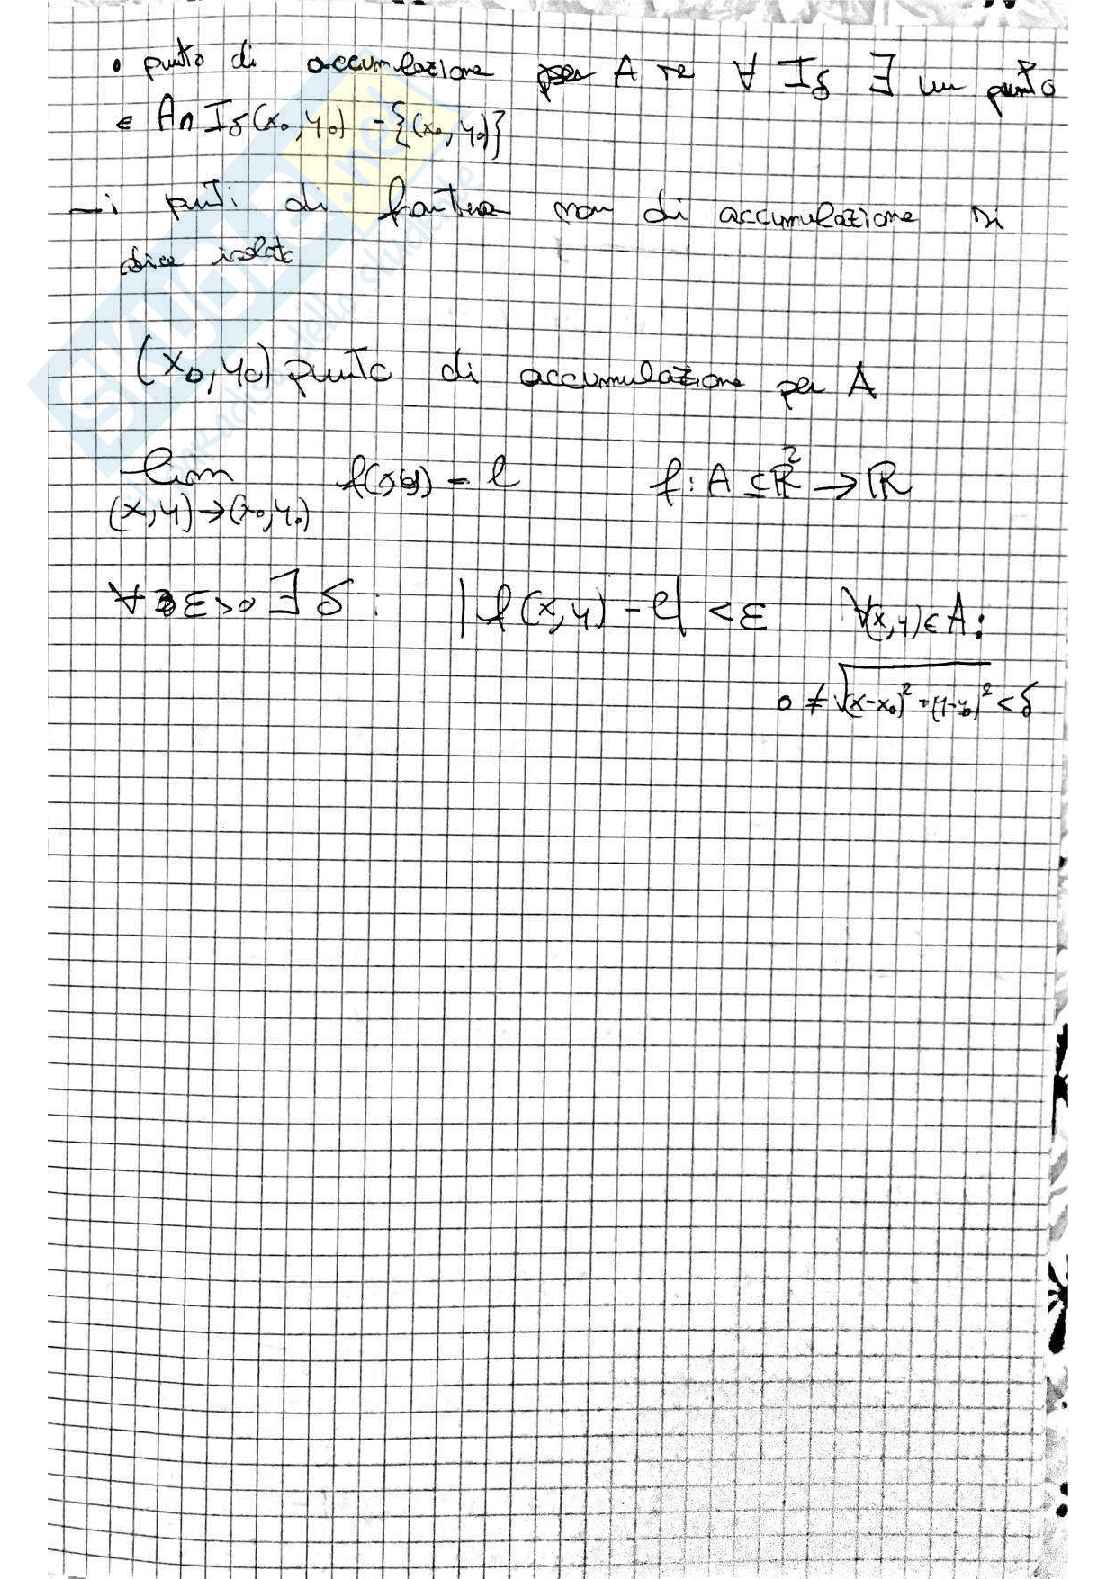 • punto di accumulazione per A se ∀ Iδ ∃ un punto
∈ A∩Iδ(x₀,y₀) -{(x₀,y₀)}
– i punti di frontiera non di accumulazione si
dice isolato
(x₀,y₀) punto di accumulazione per A
lim f(x,y) = l f: A ⊆ ℝ² → ℝ
(x,y)→(x₀,y₀)
∀ ε>0 ∃ δ : |f(x,y) - l| < ε ∀(x,y)∈A:
0 ≠ √(x-x₀)²+(y-y₀)² < δ
SKUOLA.net